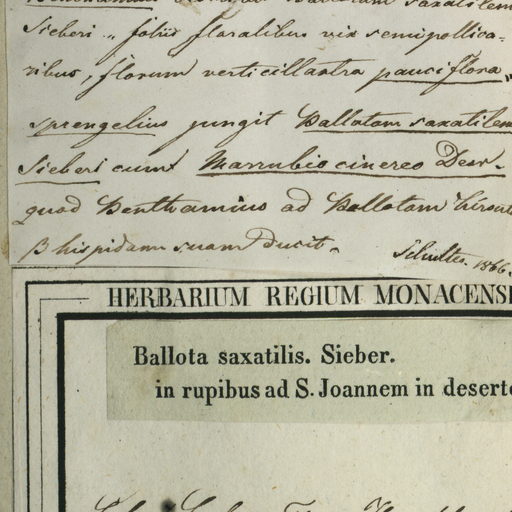 Benthamius Ballotam saxatilem
Sieberi „ foliis floralibus vix semipollica-
ribus, florum verticillastra pauciflora„
Sprengelius jungit Ballotam saxatilem
Sieberi cum Marrubio cinereo Desr.
quod Benthamius ad Ballotam hirsut
β hispidam suam ducit.
Schultes. 1866.
HERBARIUM REGIUM MONACENS
Ballota saxatilis. Sieber.
in rupibus ad S. Joannem in desert